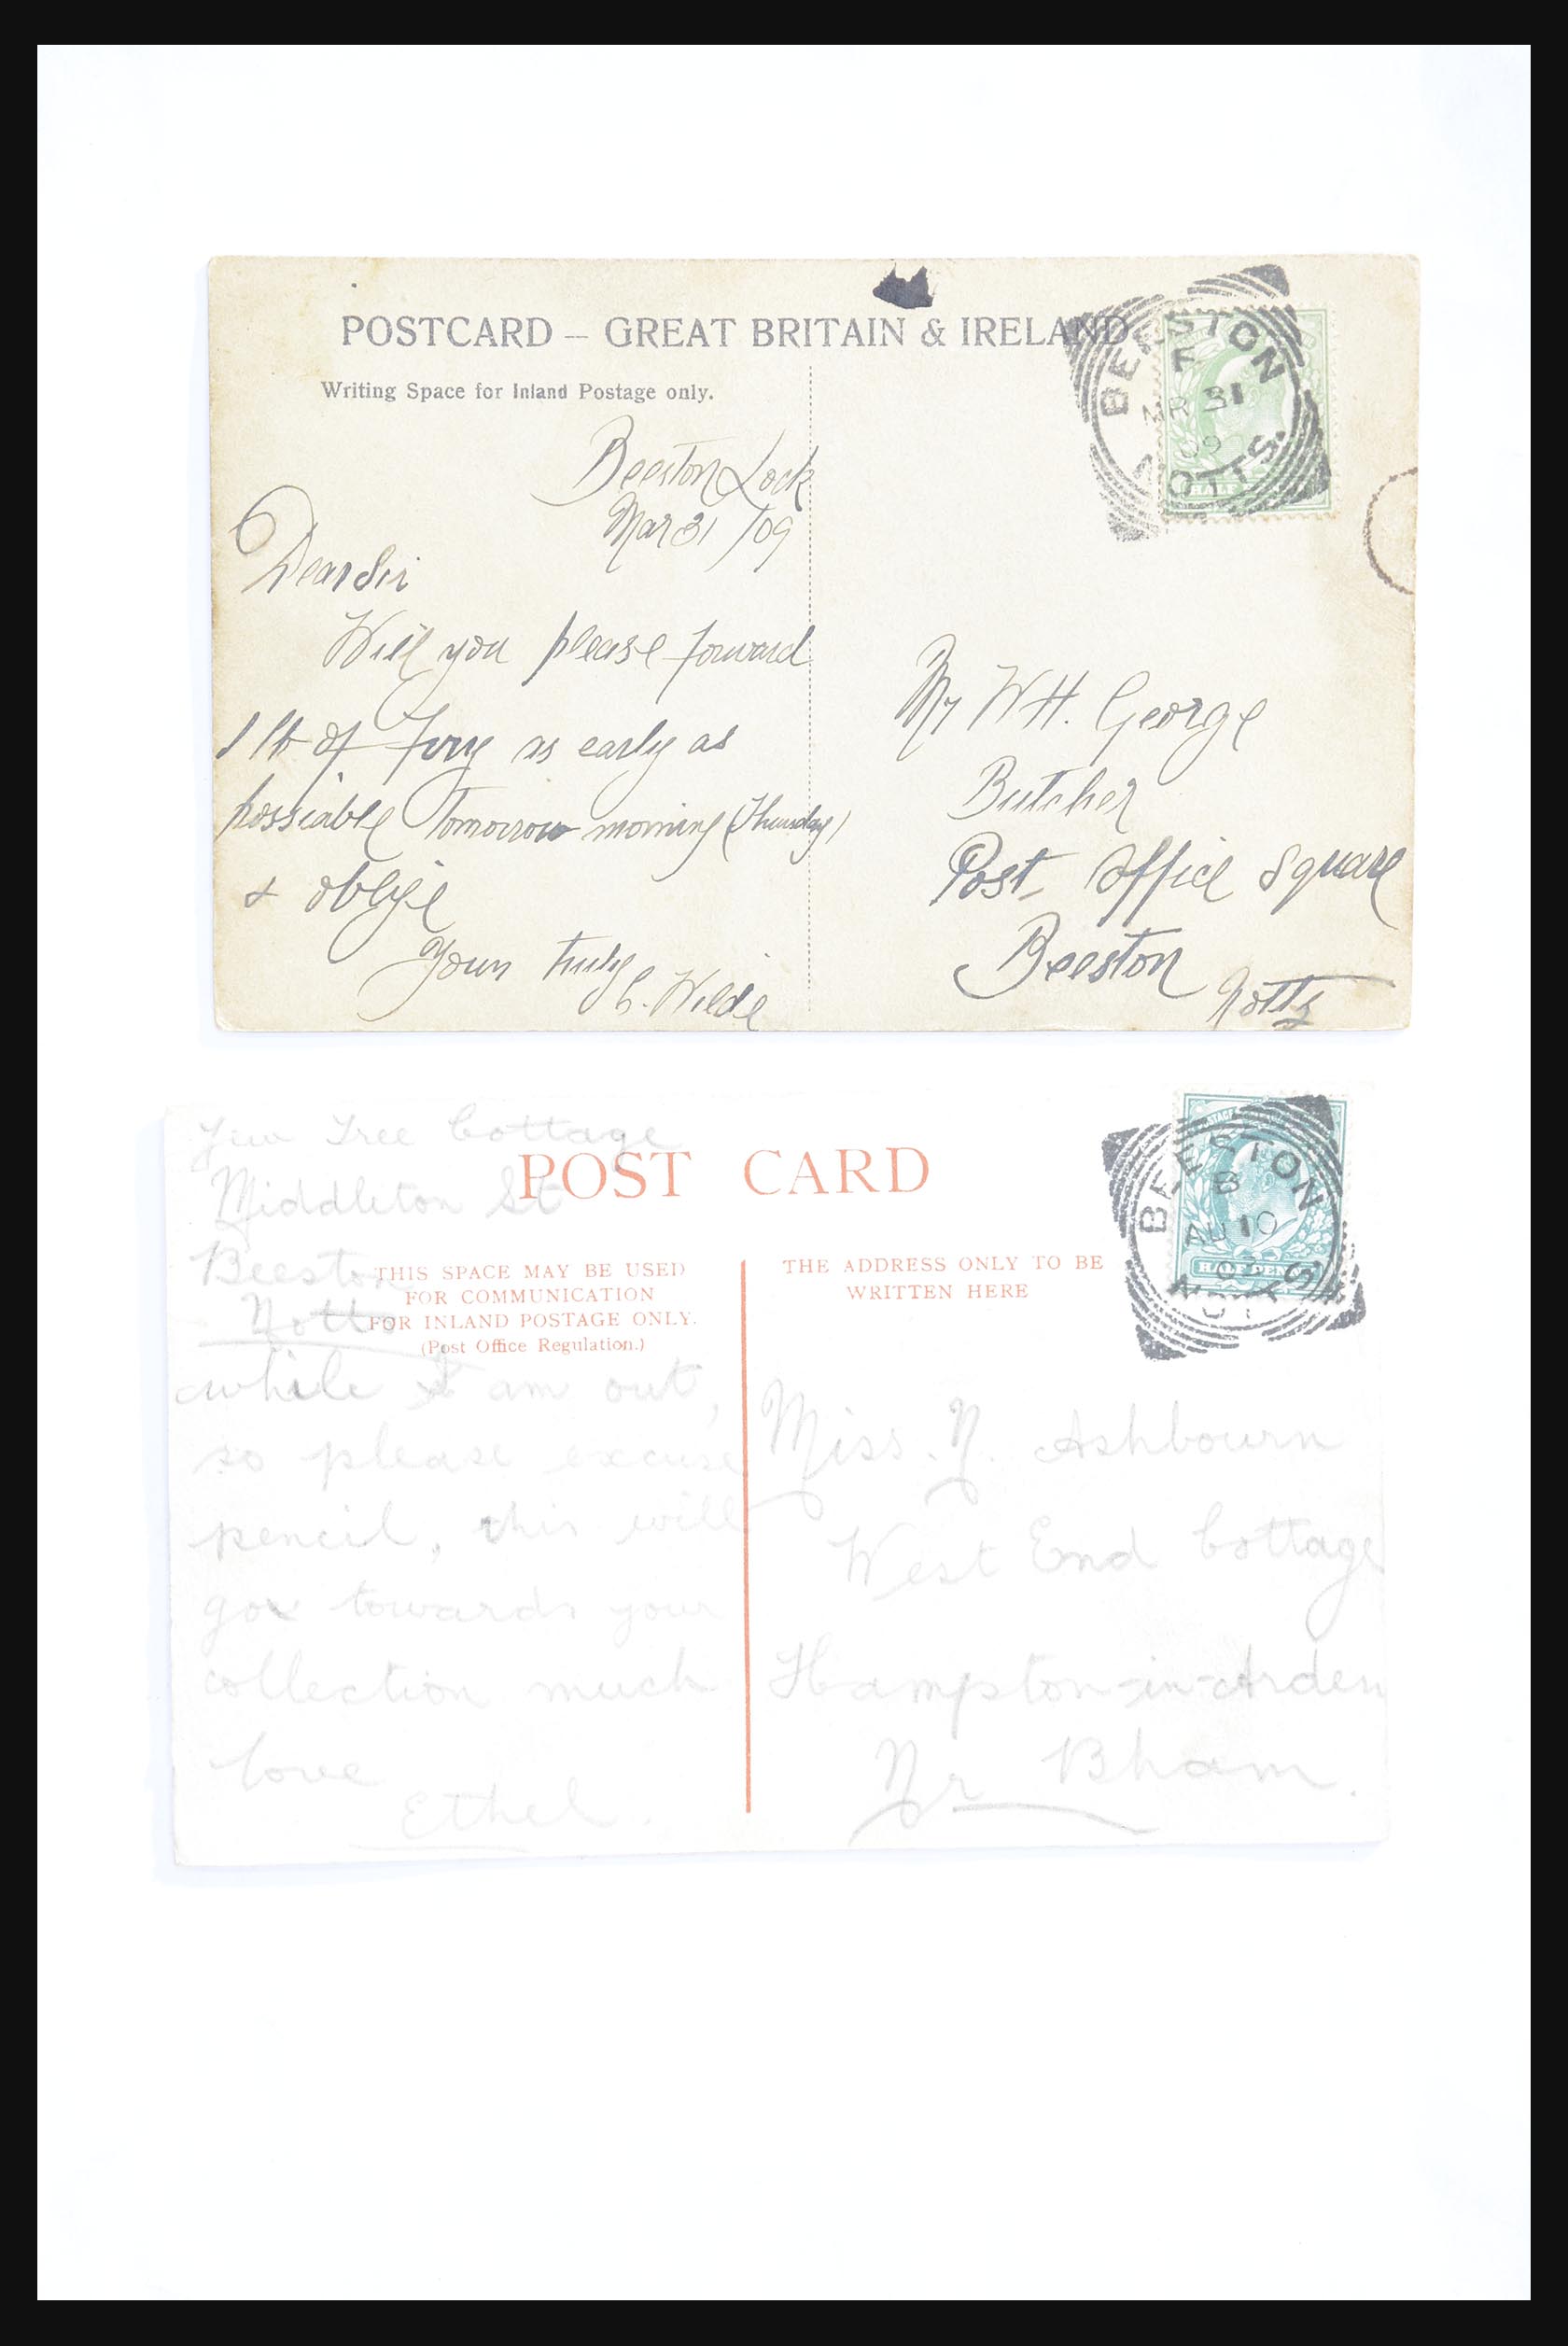 POSTCARD – GREAT BRITAIN & IRELAND
Writing Space for Inland Postage only.
BEESTON
F
MR 31
09
NOTTS.
Beeston Lock
Mar 31/09
Dear Sir
Will you please forward
1 lb of as early as
possiable Tomorrow morning (Thursday)
& oblige
Yours truly
C. Wilde
Mr W H. George
Butcher
Post Office Square
Beeston
Notts
Yew Tree Cottage
Middleton St
Beeston
Notts
POST CARD
THIS SPACE MAY BE USED
FOR COMMUNICATION
FOR INLAND POSTAGE ONLY.
(Post Office Regulation.)
THE ADDRESS ONLY TO BE
WRITTEN HERE
BEESTON
B
AU 10
NOTTS
HALF PENNY
while I am out,
so please excuse
pencil, this will
go towards your
collection much
love
Ethel.
Miss. N. Ashbourn
West End Cottage
Hampton-in-Arden
Nr Bham.